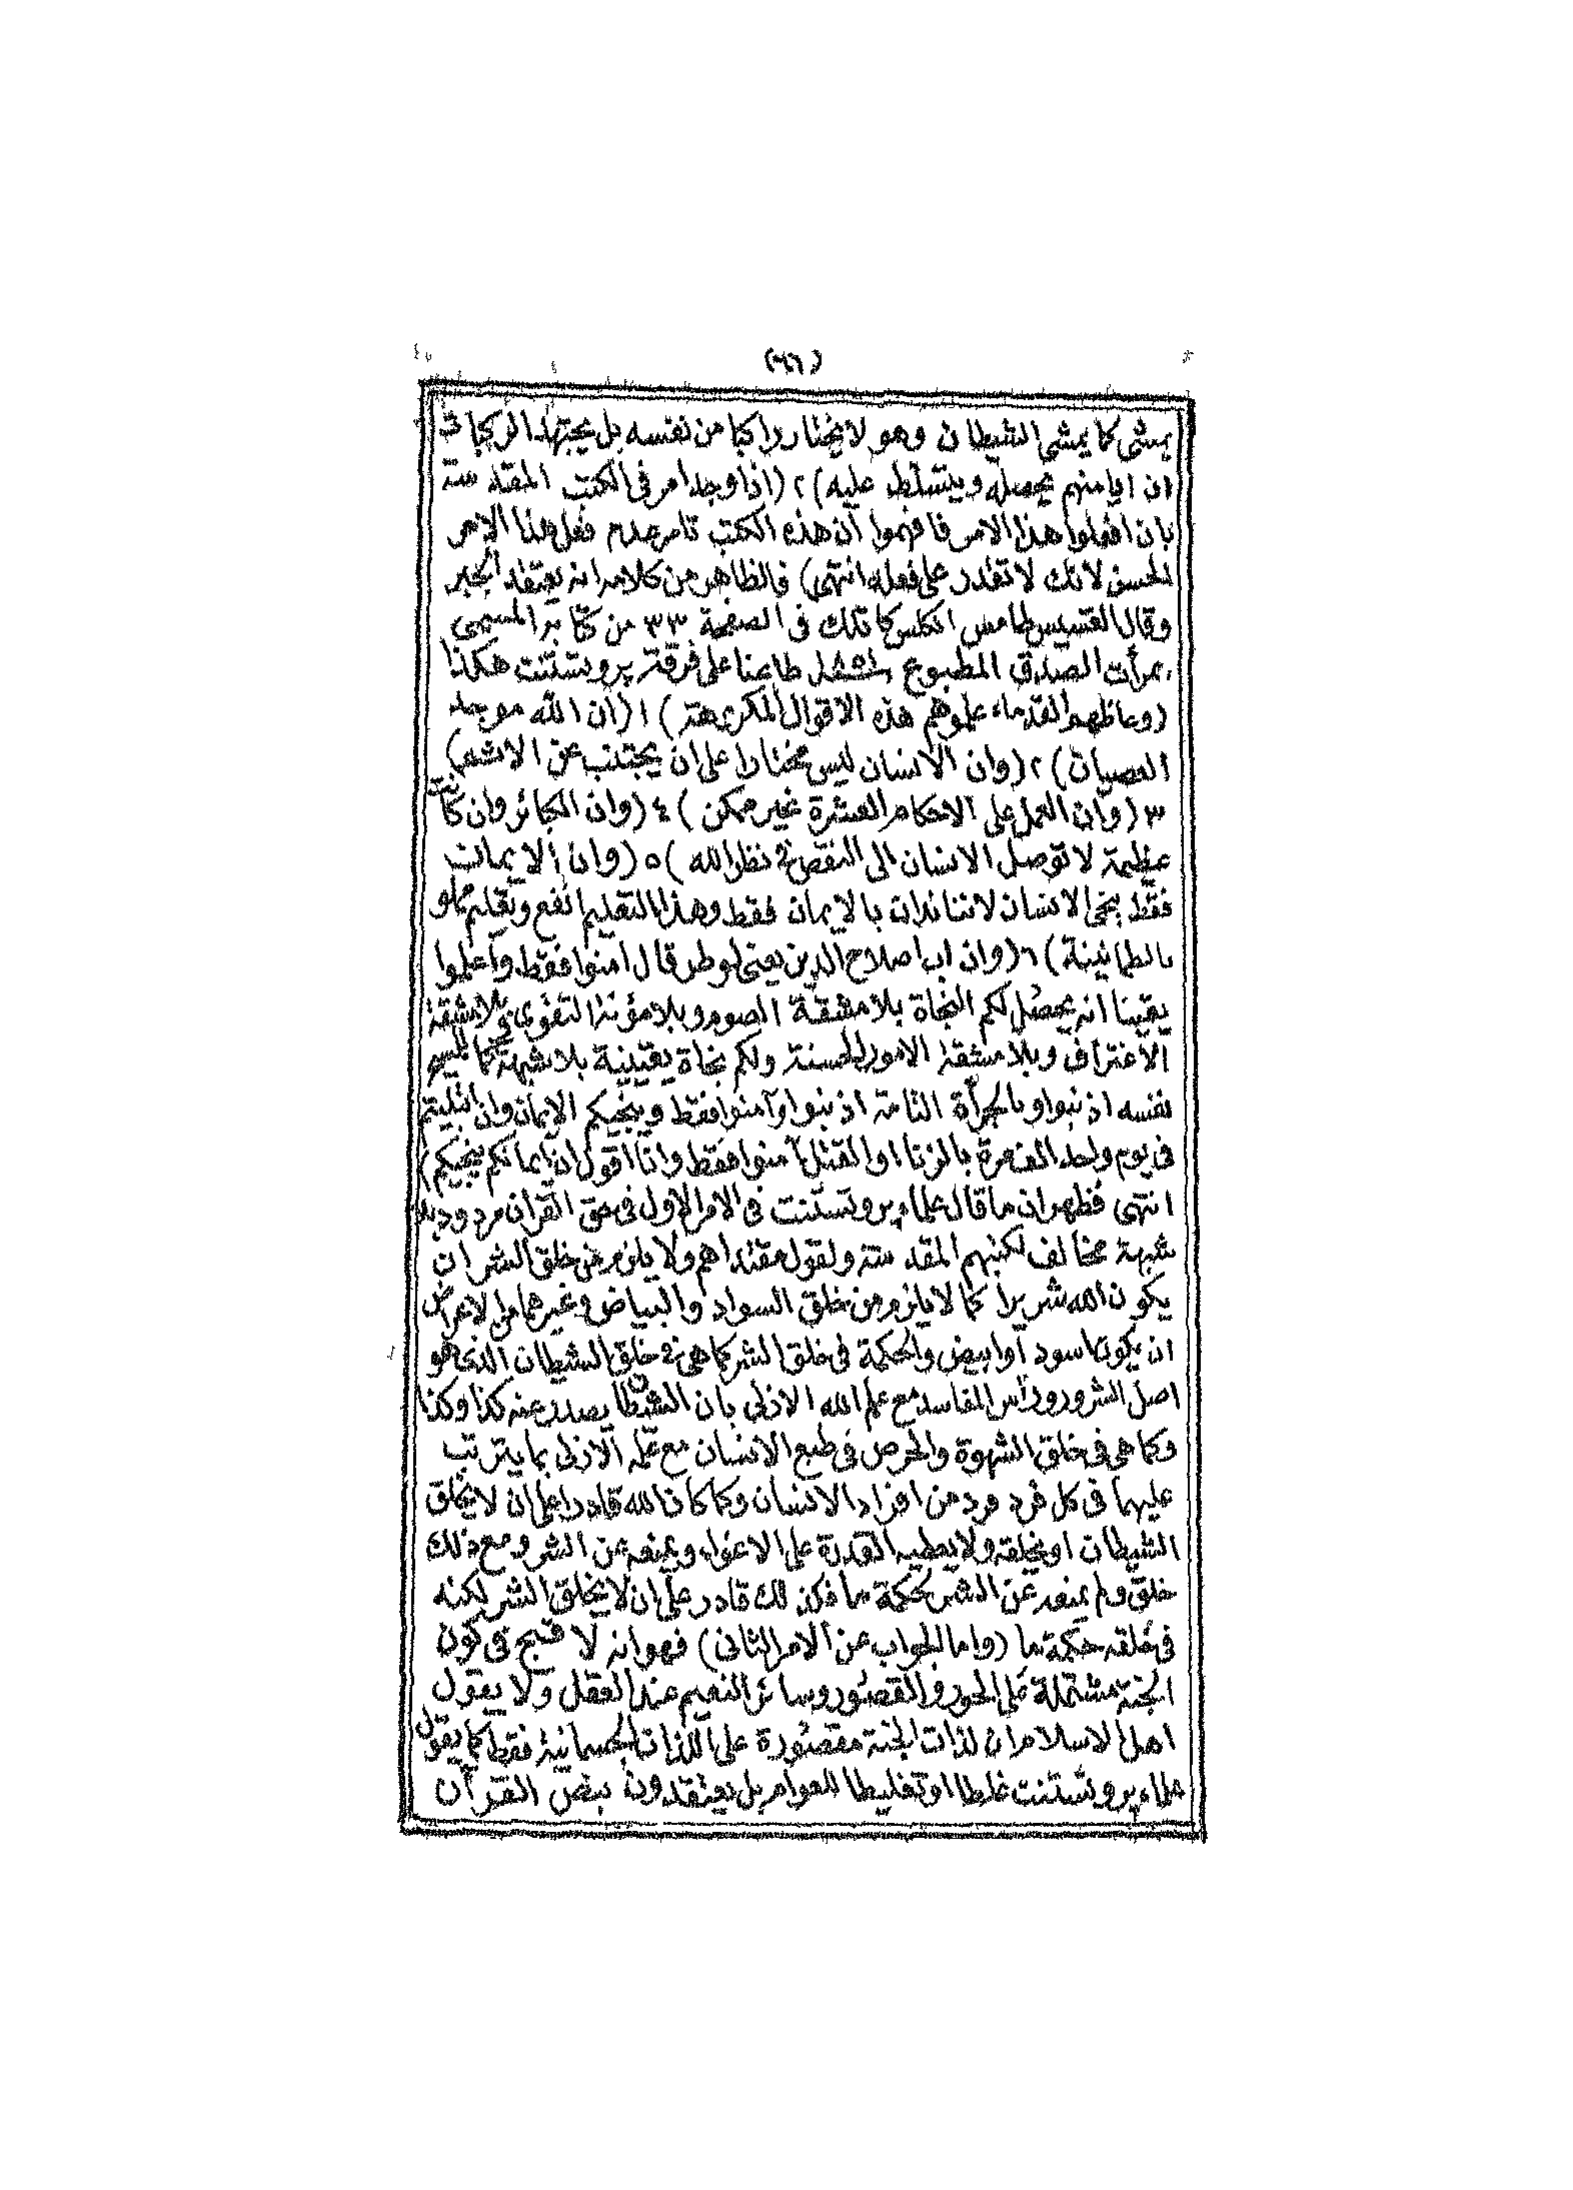 (٦٦)
يمشى كما يمشى الشيطان وهو لا يختار راكبا من نفسه بل يجتهد الركبا فى
ان ايا منهم يحصله ويتسلط عليه) ٢ (اذا وجد امر فى الكتب المقدسة
بان افعلوا هذا الامر فافهموا ان هذه الكتب تامر عدم فعل هذا الامر
الحسن لانك لا تقدر على فعله انتهى) فالظاهر من كلامه انه يعتقد الجبر
وقال القسيس طامس انكلس كاتلك فى الصفحة ٣٣ من كتابه المسمى
بمرأت الصدق المطبوع طاعنا على فرقة پروتستنت هكذا
(وعاظهم القدماء علموهم هذه الاقوال المكروهة) ١ (ان الله موجد
العصيان) ٢ (وان الانسان ليس مختارا على ان يجتنب عن الاثم)
٣ (وان العمل على الاحكام العشرة غير ممكن) ٤ (وان الكبائر وان كانت
عظيمة لا توصل الانسان الى النقص فى نظر الله) ٥ (وان الايمان
فقط ينجى الانسان لاننا ندان بالايمان فقط وهذا التعليم انفع وتعليم مملو
بالطمانينة) ٦ (وان اب اصلاح الدين يعنى لوطر قال امنوا فقط واعلموا
يقينا انه يحصل لكم النجاة بلا مشقة الصوم وبلا مؤنة التقوى وبلا مشقة
الاعتراف وبلا مشقة الامور الحسنة ولكم نجاة يقينية بلا شبهة كما للمسيح
نفسه اذنبوا وبالجرأة التامة اذنبوا وآمنوا فقط وينجيكم الايمان وان ابتليتم
فى يوم واحد الف مرة بالزنا او القتل آمنوا فقط وانا اقول ان ايمانكم ينجيكم)
انتهى فظهر ان ما قال علماء پروتستنت فى الامر الاول فى حق القرآن مردود بلا
شبهة مخالف لكتبهم المقدسة ولقول مقتداهم ولا يلزم من خلق الشر ان
يكون الله شريرا كما لا يلزم من خلق السواد والبياض وغيرهما من الاعراض
ان يكون اسود او ابيض والحكمة فى خلق الشر كما هى فى خلق الشيطان الذى هو
اصل الشرور وراس المفاسد مع علم الله الازلى بان الشيطان يصدر عنه كذا وكذا
وكما هى فى خلق الشهوة والحرص فى طبع الانسان مع علمه الازلى بما يترتب
عليهما فى كل فرد فرد من افراد الانسان وكما كان الله قادرا على ان لا يخلق
الشيطان او يخلقه ولا يعطيه القدرة على الاغواء ويمنعه عن الشر ومع ذلك
خلق ولم يمنعه عن الشر لحكمة ما فكذلك قادر على ان لا يخلق الشر لكنه
فى خلقه حكمة ما (واما الجواب عن الامر الثانى) فهو انه لا قبح فى كون
الجنة مشتملة على الحور والقصور وسائر النعيم عند العقل ولا يقول
اهل الاسلام ان لذات الجنة مقصورة على اللذات الجسمانية فقط كما يقول
علماء پروتستنت غلطا او تغليطا للعوام بل يعتقدون بنص القرآن